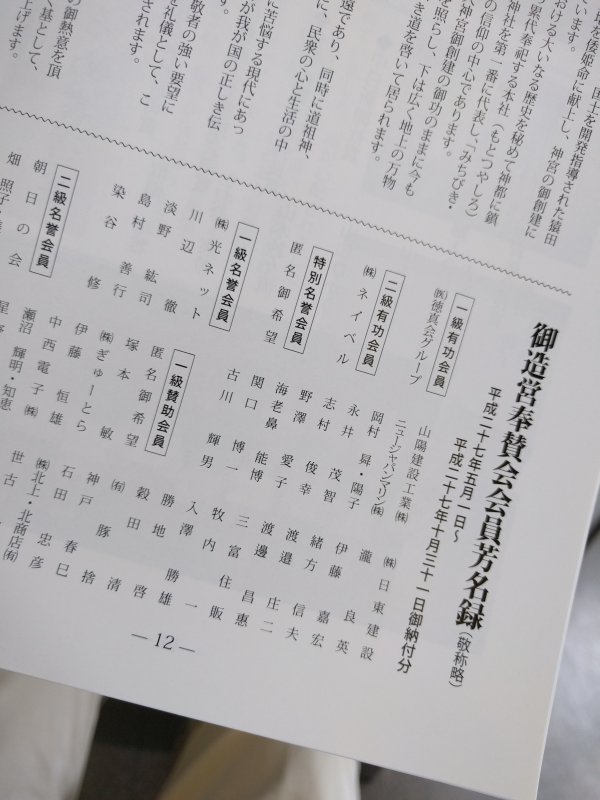 国土を開発指導された猿田
地を倭姫命に献上し、神宮の御創建に
います。
おける大いなる歴史を秘めて神都に鎮
累代奉祀する本社（もとつやしろ）
神社を第一番に代表し、「みちびき・
の信仰の中心であります。
神宮御創建の御功のままに今も
を照らし、下は広く地上の万物
き道を啓いて居られます。
遠であり、同時に道祖神、
に、民衆の心と生活の中
に苦悩する現代にあっ
が我が国の正しき伝
す。
敬者の強い要望に
を礼儀として、こ
されます。
の御熱意を頂
く基として、
上げます。
御造営奉賛会会員芳名録（敬称略）
平成二十七年五月一日～
平成二十七年十月三十一日御納付分
一級有功会員
㈱徳真会グループ
二級有功会員
㈱ネイベル
特別名誉会員
匿名御希望
一級名誉会員
㈱光ネット
川辺 徹
淡野 紘司
島村 善行
染谷 修
二級名誉会員
朝日の会
畑 照子
山陽建設工業㈱
ニュージャパンマリン㈱
岡村 昇・陽子
永井 茂智
志村 俊幸
野澤 愛子
海老鼻 能博
関口 博一
古川 輝男
一級賛助会員
匿名御希望
塚本 敏
㈱ぎゅーとら
伊藤 恒雄
中西電子㈱
瀬沼 輝明・知恵
星野
㈱日東建設
瀧 良英
伊藤 嘉宏
緒方 信夫
渡邉 庄二
渡邊 昌惠
三富住販
牧内 一
入澤 勝雄
勝地 啓
穀田 清
㈲神戸豚捨
石田 春巳
㈱北上・北商店㈲
世古 忠彦
—12—